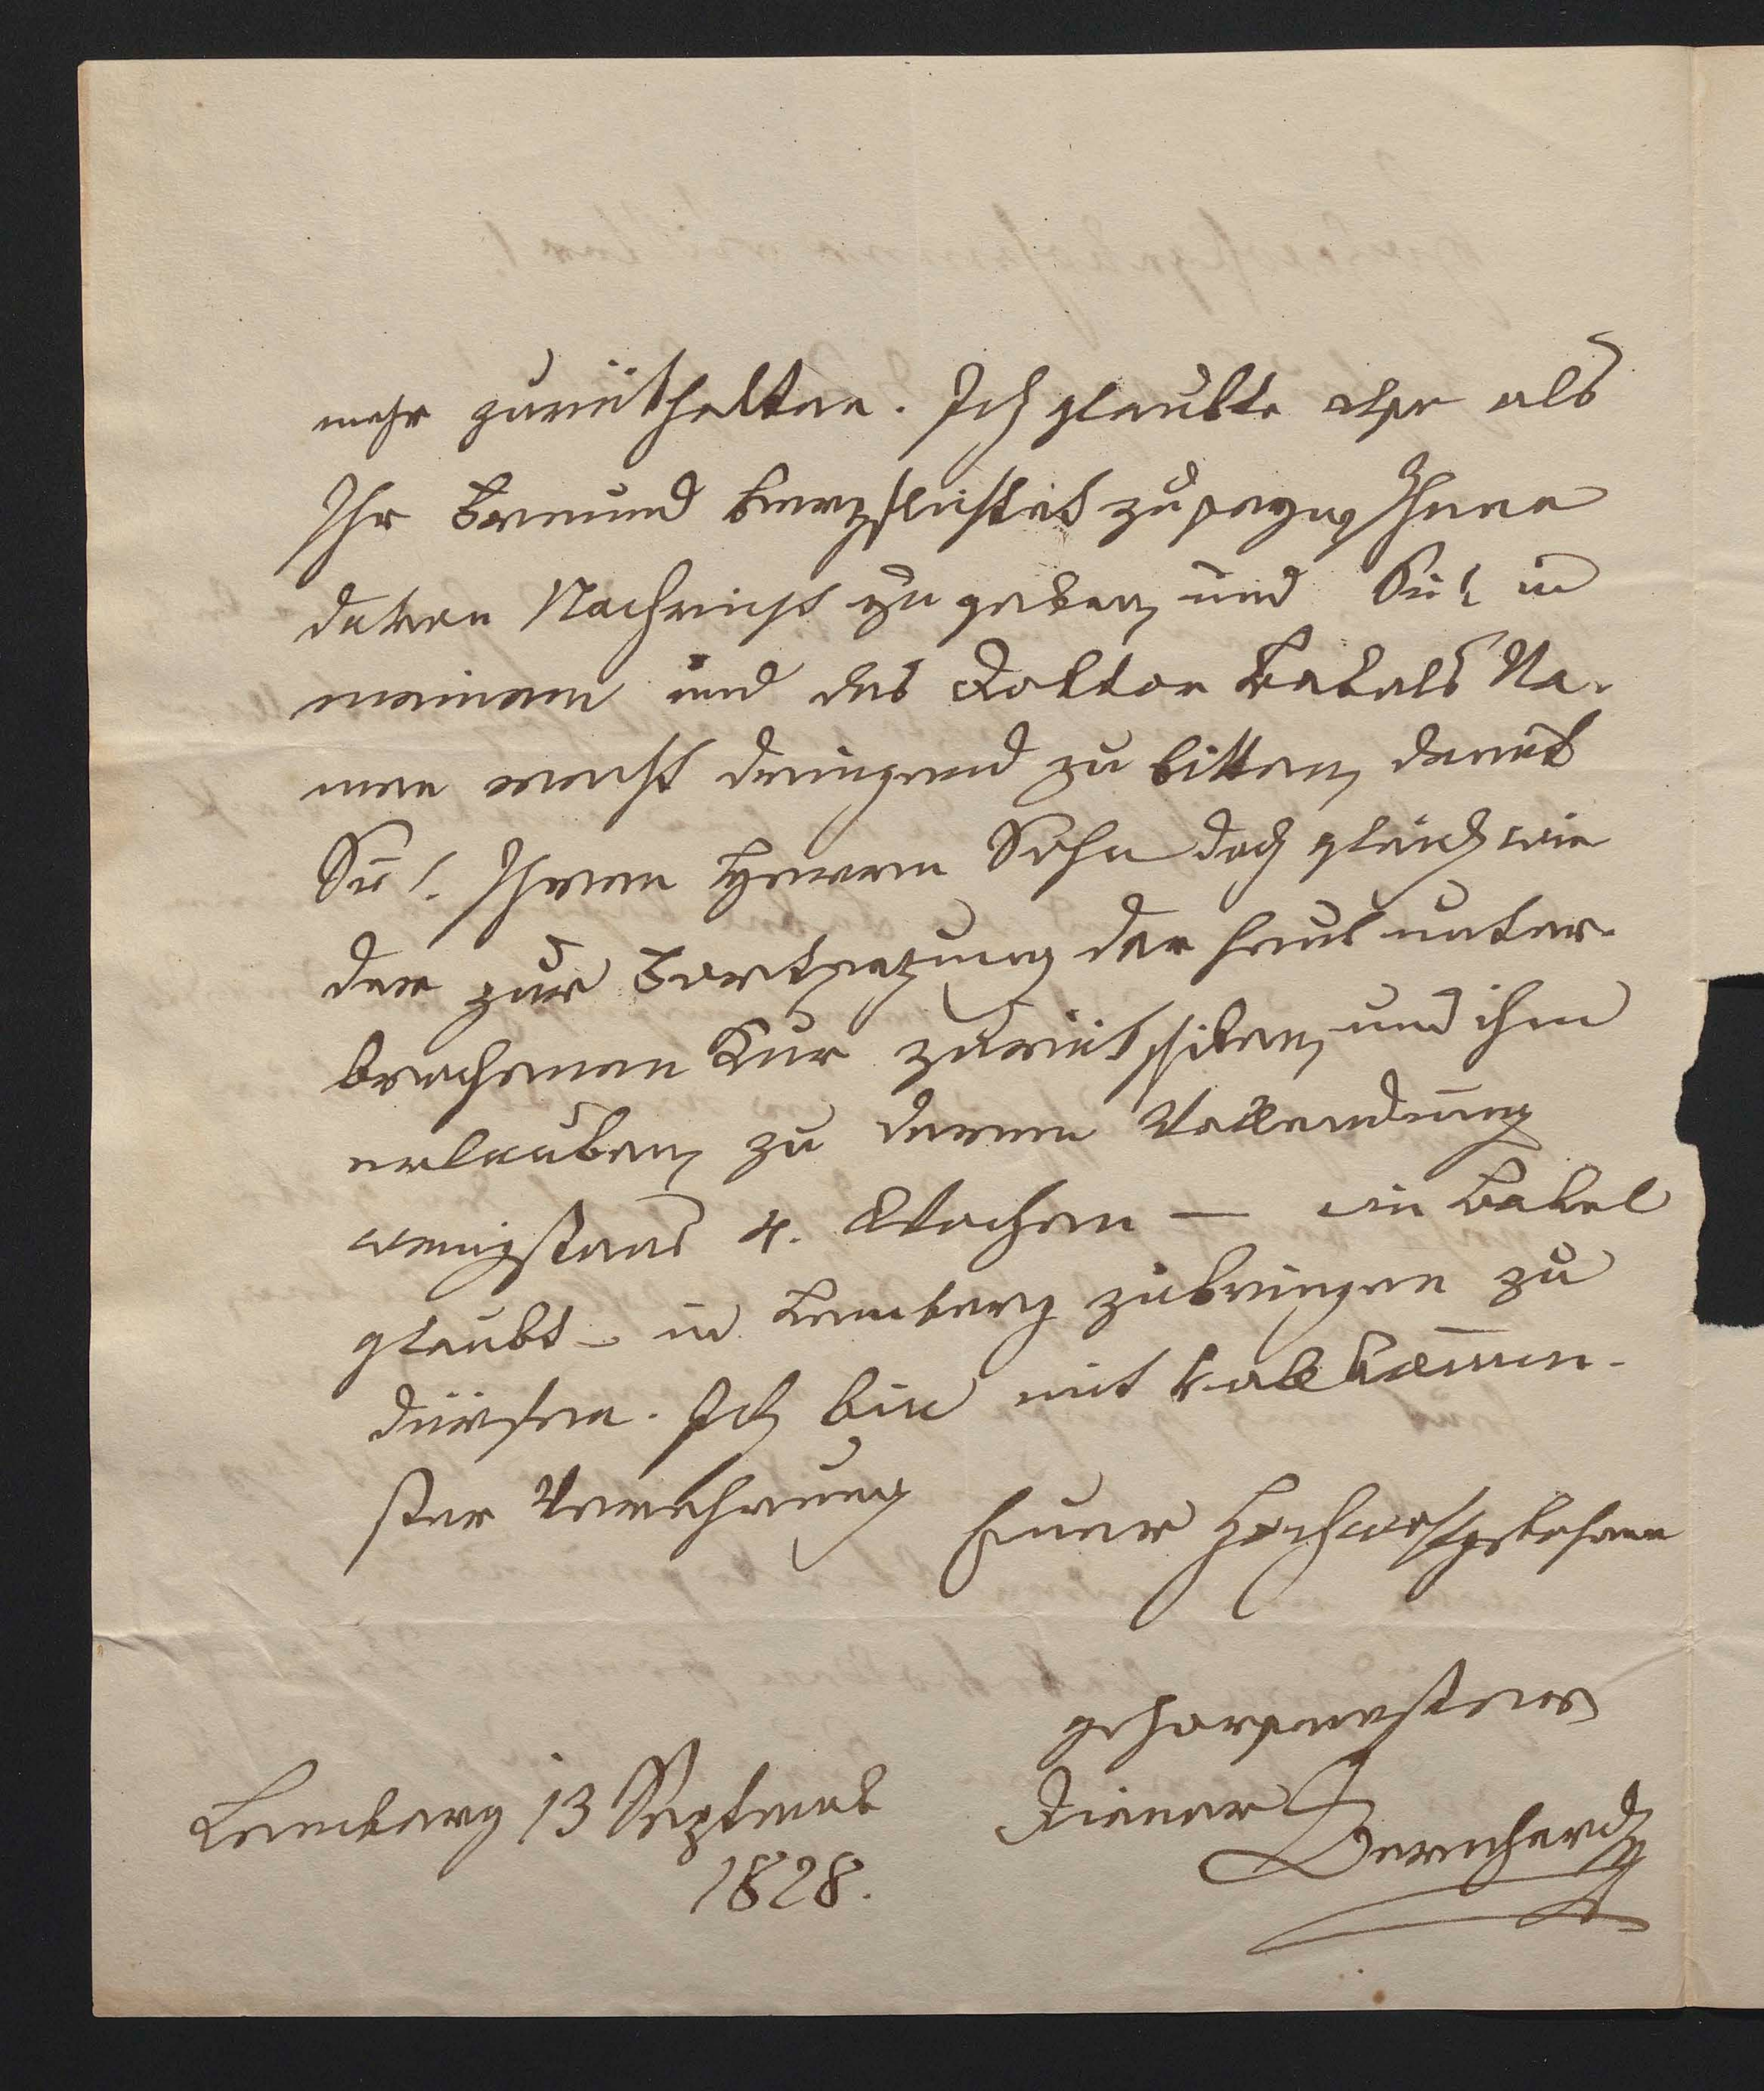 mehr zurükhalten. Ich glaubte aber als
Ihr Freund verpflichtet zu seyn, Ihnen
davon Nachricht zu geben, und Sie! in
meinem und des Doktor Na-
men recht dringend zu bitten, damit
Sie! Ihren Herrn Sohn doch gleich wie
der zur Fortsezung der hier unter-
brochenen Kur zurükschiken, und ihm
erlauben, zu deren Vollendung
wenigstens 4. Wochen — wie
glaubt – in Lemberg zubringen zu
dürfen. Ich bin mit vollkommen-
ster Verehrung Euer Hochwohlgebohren
gehorsamster
Diener
Bernhard
Lemberg 13 Septemb
1828.